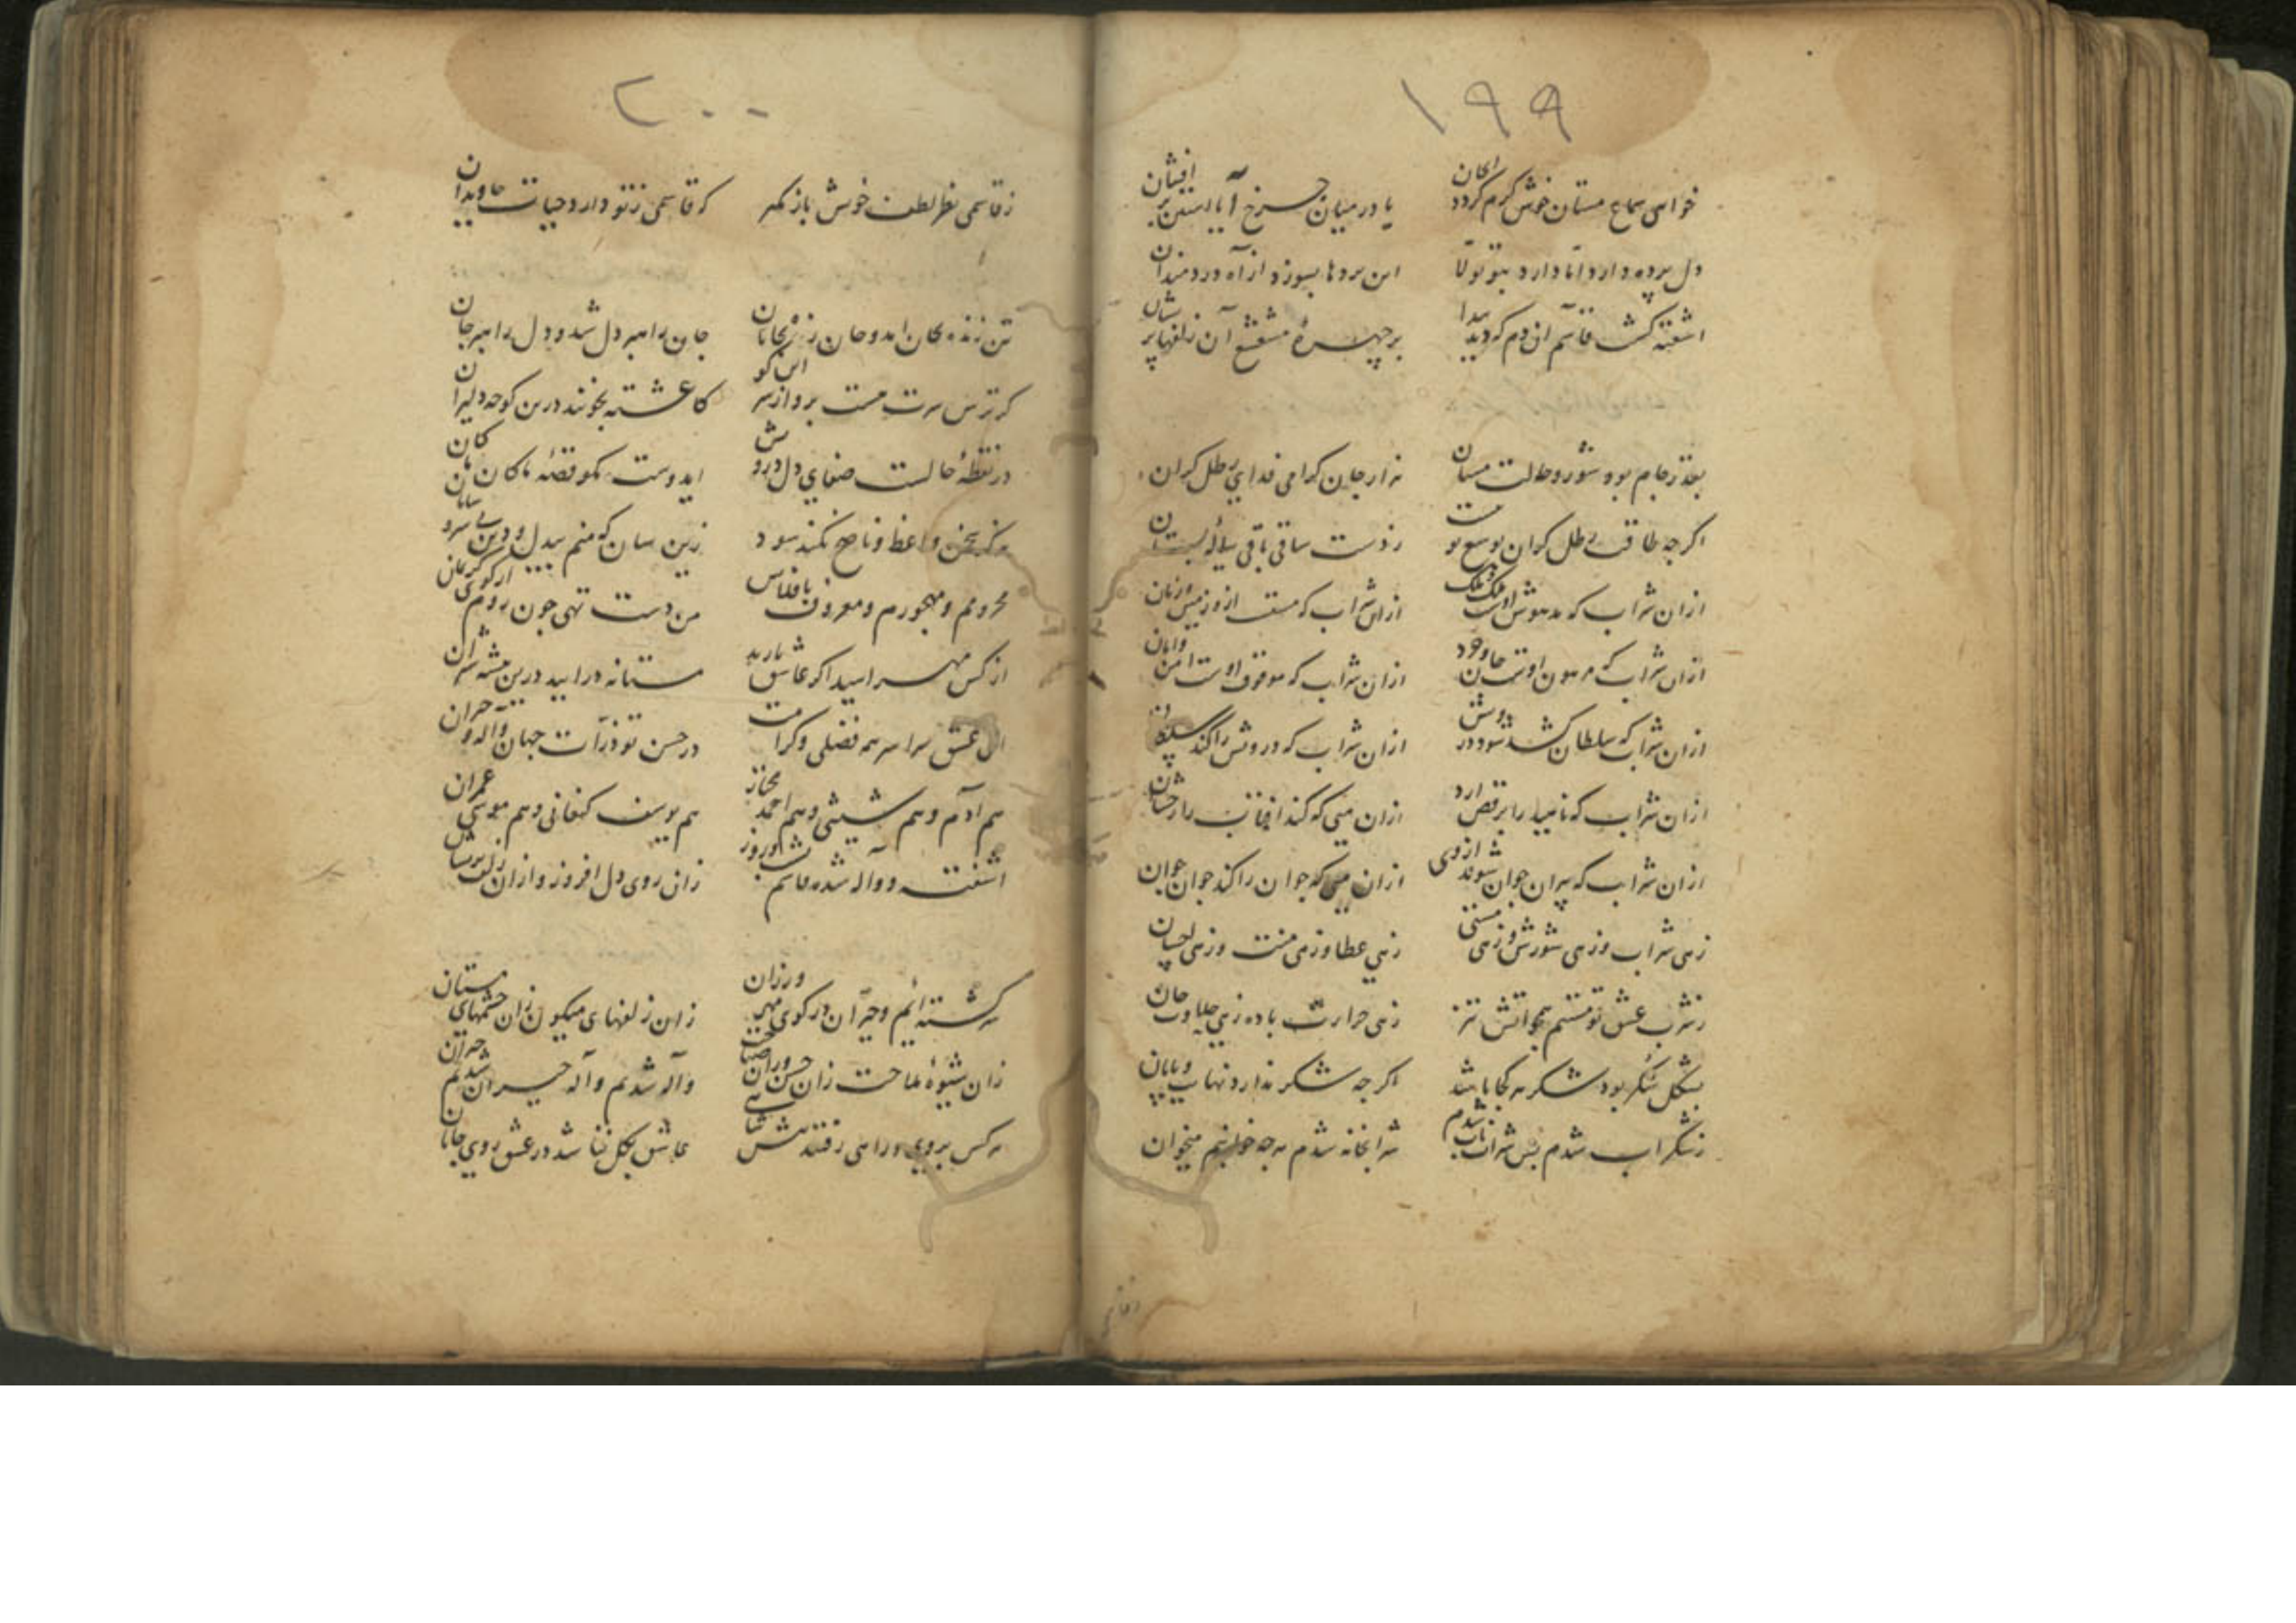 ۱۹۹
خواهی سماع مستان خوش گرم گردد امکان
یا در میان چرخ آ یا استین بر افشان
دل پرده دارد اما دارد بتو تولا
این پردها بسوزد از آه دردمندان
اشفته گشت قاسم ان دم که دید پیدا
بر چهرهٔ مشعشع آن زلفها پریشان
بقدر جام بود شور و حالت مستان
هزار جان گرامی فدای رطل گران
اگرچه طاقت رطل گران بوسع تو نیست
ز دست ساقی باقی پیاله بستان
ازان شراب که مدهوش اوست ملک و ملک
ازان شراب که مست از و زمین و زمان
ازان شراب که مرهون اوست جان وجود
ازان شراب که موقوف اوست امن و امان
ازان شراب که سلطان کشد شود درویش
ازان شراب که درویش را کند سلطان
ازان شراب که ناهید را برقص ارد
ازان میی که کند افتاب را رخشان
ازان شراب که پیران جوان شوند ازوی
ازان میی که جوان را کند جوان جوان
زهی شراب و زهی شورش و زهی مستی
زهی عطا و زهی منت و زهی احسان
ز شرب عشق تو مستم همچو اتش تیز
زهی حرارت باده زهی حلاوت جان
بشکل شکر بود شکر هر کجا باشد
اگرچه شکر ندارد نهایت و پایان
ز شکر اب شدم پس شراب ناب شدم
شرابخانه شدم هرچه خوانیم میخوان
۲۰۰
ز قاسمی نظر لطف خوش باز مگیر
که قاسمی ز تو دارد حیات جاویدان
تن زنده بجان امد و جان زنده بجانان
جان راهبر دل شد و دل راهبر جان
گر ترس سرت هست برو از سر این کو
کاغشته بخونند درین کوچه دلیران
در نقطهٔ حالست صفای دل درویش
ایدوست مگو قصهٔ ماکان کان
هرگز سخن واعظ و ناصح نکند سود
زین سان که منم بیدل و دین بی سر و سامان
محرومم و مهجورم و معروف بافلاس
من دست تهی چون روم از کوی کریمان
از کس مهراسید اگر عاشق یارید
مستانه درایید درین بیشه شیران
ای عشق سراسر همه فضلی و کرامت
در حسن تو ذرات جهان واله و حیران
هم ادم و هم شیثی و هم احمد مختار
هم یوسف کنعانی و هم موسی عمران
اشفته و واله شده قاسم شب و روز
زان روی دل افروز و ازان زلف پریشان
سرگشته ایم و حیران در کوی مهرورزان
زان زلفهای میگون زان چشمهای مستان
زان شیوهٔ ملاحت زان حسن
واله شدیم واله حیران شدیم حیران
هر کس بروی و راهی رفتند
عاشق بکل فنا شد در عشق روی جانان